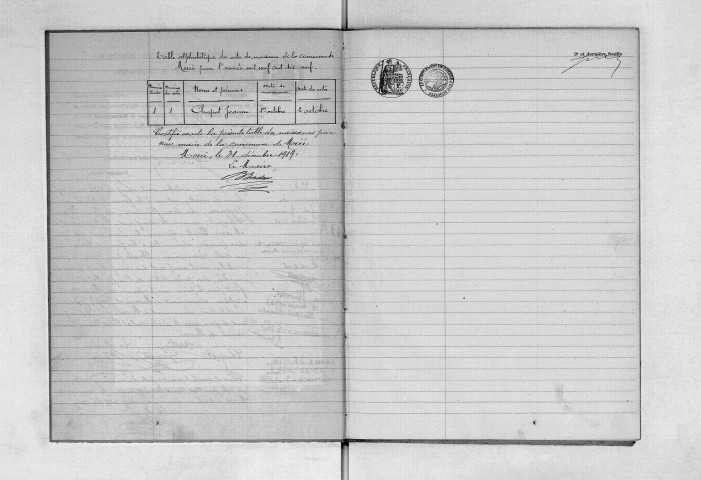 Table alphabétique des actes de naissance de la commune de
Moiré pour l'année mil neuf cent dix neuf.
Noms et prénoms
Date de naissance
Date des actes
1 1 Chaput Jeanne 1er octobre 2 octobre
Certifié exacte la présente table des naissances par
nous maire de la commune de Moiré
Moiré, le 31 décembre 1919.
Le Maire,
2e et dernière feuille